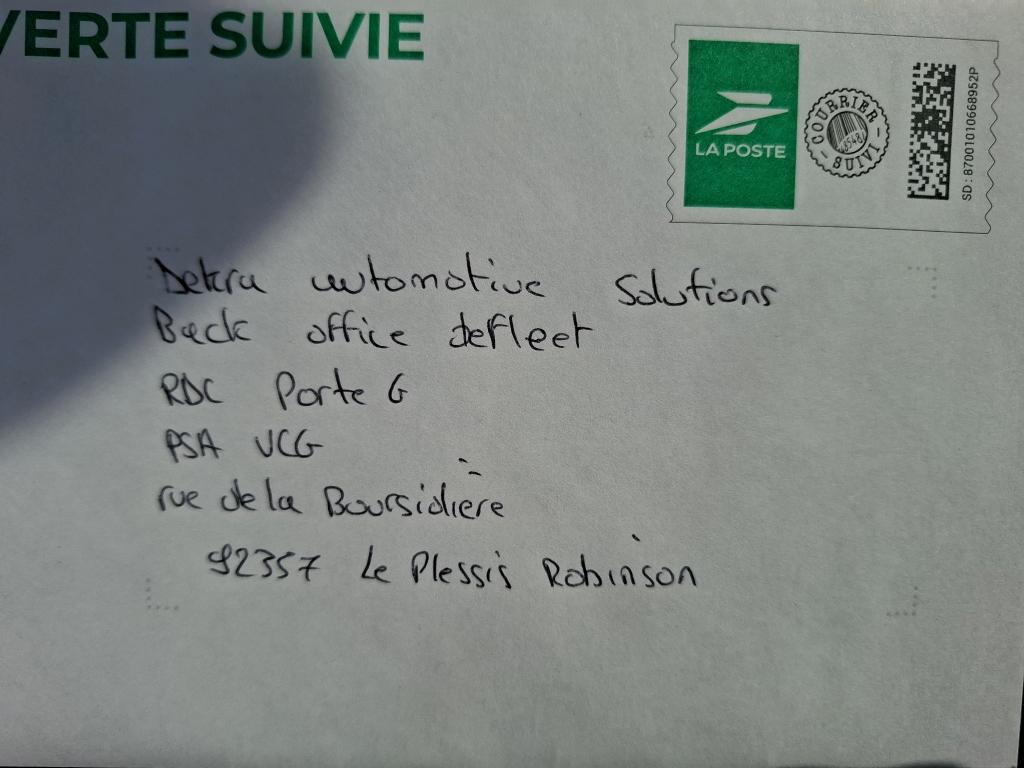 VERTE SUIVIE
LA POSTE
COURRIER SUIVI
SD : 87001010668952P
Dekra automotive Solutions
Back office defleet
RDC Porte G
PSA VCG
rue de la Boursidière
92357 Le Plessis Robinson